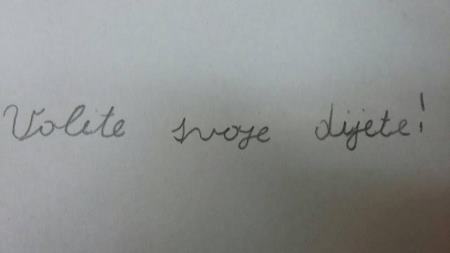 Volite svoje dijete!